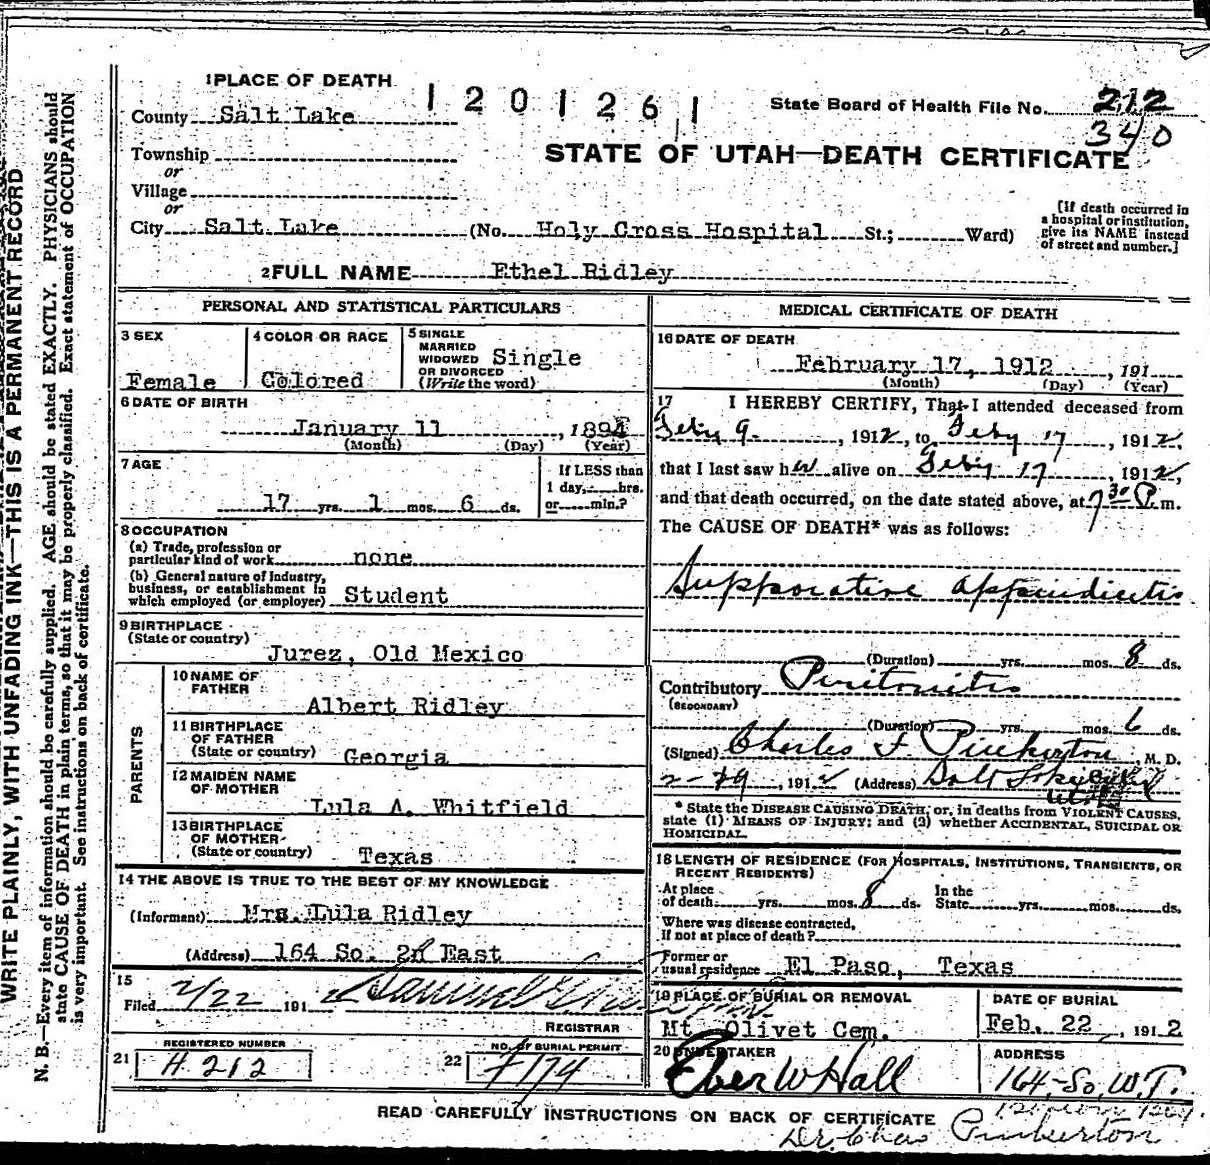 1 PLACE OF DEATH
1201261
State Board of Health File No. 212
340
County Salt Lake
STATE OF UTAH—DEATH CERTIFICATE
Township
or
Village
or
City Salt Lake (No. Holy Cross Hospital St.; Ward)
[If death occurred in a hospital or institution, give its NAME instead of street and number.]
2 FULL NAME Ethel Ridley
PERSONAL AND STATISTICAL PARTICULARS
3 SEX
Female
4 COLOR OR RACE
Colored
5 SINGLE
MARRIED
WIDOWED
OR DIVORCED
(Write the word)
Single
6 DATE OF BIRTH
January 11, 1894
(Month) (Day) (Year)
7 AGE
17 yrs. 1 mos. 6 ds.
If LESS than
1 day, hrs.
or min.?
8 OCCUPATION
(a) Trade, profession or
particular kind of work none
(b) General nature of industry,
business, or establishment in
which employed (or employer) Student
9 BIRTHPLACE
(State or country)
Jurez, Old Mexico
PARENTS
10 NAME OF
FATHER
Albert Ridley
11 BIRTHPLACE
OF FATHER
(State or country) Georgia
12 MAIDEN NAME
OF MOTHER
Lula A. Whitfield
13 BIRTHPLACE
OF MOTHER
(State or country) Texas
14 THE ABOVE IS TRUE TO THE BEST OF MY KNOWLEDGE
(Informant) Mrs. Lula Ridley
(Address) 164 So. 2d East
15
Filed 2/22 191 2 Samuel G.
REGISTRAR
21 REGISTERED NUMBER
H 212
22 NO. OF BURIAL PERMIT
F174
MEDICAL CERTIFICATE OF DEATH
16 DATE OF DEATH
February 17, 1912, 191
(Month) (Day) (Year)
17 I HEREBY CERTIFY, That I attended deceased from
Feby 9, 1912, to Feby 17, 1912,
that I last saw her alive on Feby 17, 1912,
and that death occurred, on the date stated above, at 7 30 P. m.
The CAUSE OF DEATH* was as follows:
Suppurative appendicitis
(Duration) yrs. mos. 8 ds.
Contributory Peritonitis
(SECONDARY)
(Duration) yrs. mos. 6 ds.
(Signed) Charles F. Pinkerton M. D.
2-19, 1912 (Address) Salt Lake City
Utah
* State the DISEASE CAUSING DEATH, or, in deaths from VIOLENT CAUSES,
state (1) MEANS OF INJURY; and (2) whether ACCIDENTAL, SUICIDAL OR
HOMICIDAL.
18 LENGTH OF RESIDENCE (FOR HOSPITALS, INSTITUTIONS, TRANSIENTS, OR
RECENT RESIDENTS)
At place
of death yrs. mos. 8 ds.
In the
State yrs. mos. ds.
Where was disease contracted,
If not at place of death?
Former or
usual residence El Paso, Texas
19 PLACE OF BURIAL OR REMOVAL
Mt. Olivet Cem.
DATE OF BURIAL
Feb. 22, 1912
20 UNDERTAKER
Eber W Hall
ADDRESS
164-So. W.T.
READ CAREFULLY INSTRUCTIONS ON BACK OF CERTIFICATE
Dr. Chas Pinkerton
WRITE PLAINLY, WITH UNFADING INK—THIS IS A PERMANENT RECORD
N. B.—Every item of information should be carefully supplied. AGE should be stated EXACTLY. PHYSICIANS should
state CAUSE OF DEATH in plain terms, so that it may be properly classified. Exact statement of OCCUPATION
is very important. See instructions on back of certificate.